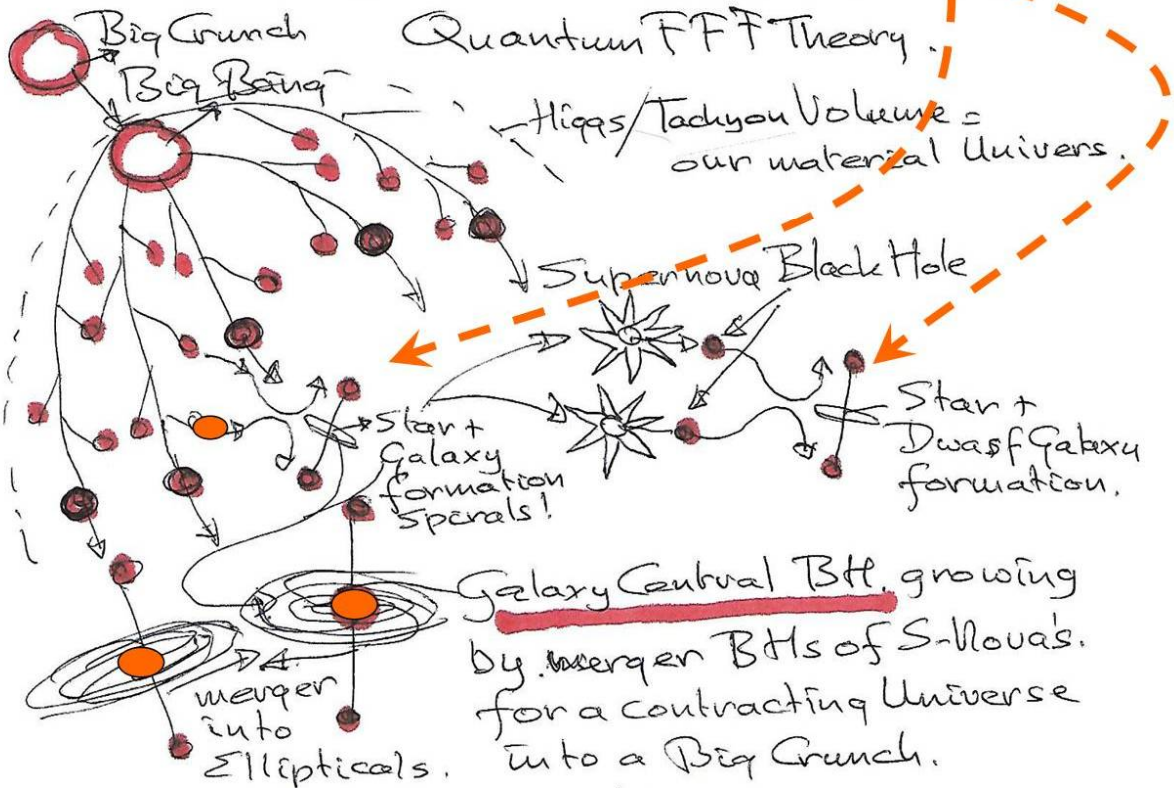 Big Crunch
Quantum FFF Theory.
Big Bang
Higgs/Tachyon Volume =
our material Univers.
Supernova Black Hole
Star +
Galaxy
formation
spirals!
Star +
Dwasf Galaxy
formation.
Galaxy Central BH, growing
by merger BHs of S-Nova's.
for a contracting Universe
into a Big Crunch.
merger
into
Ellipticals.